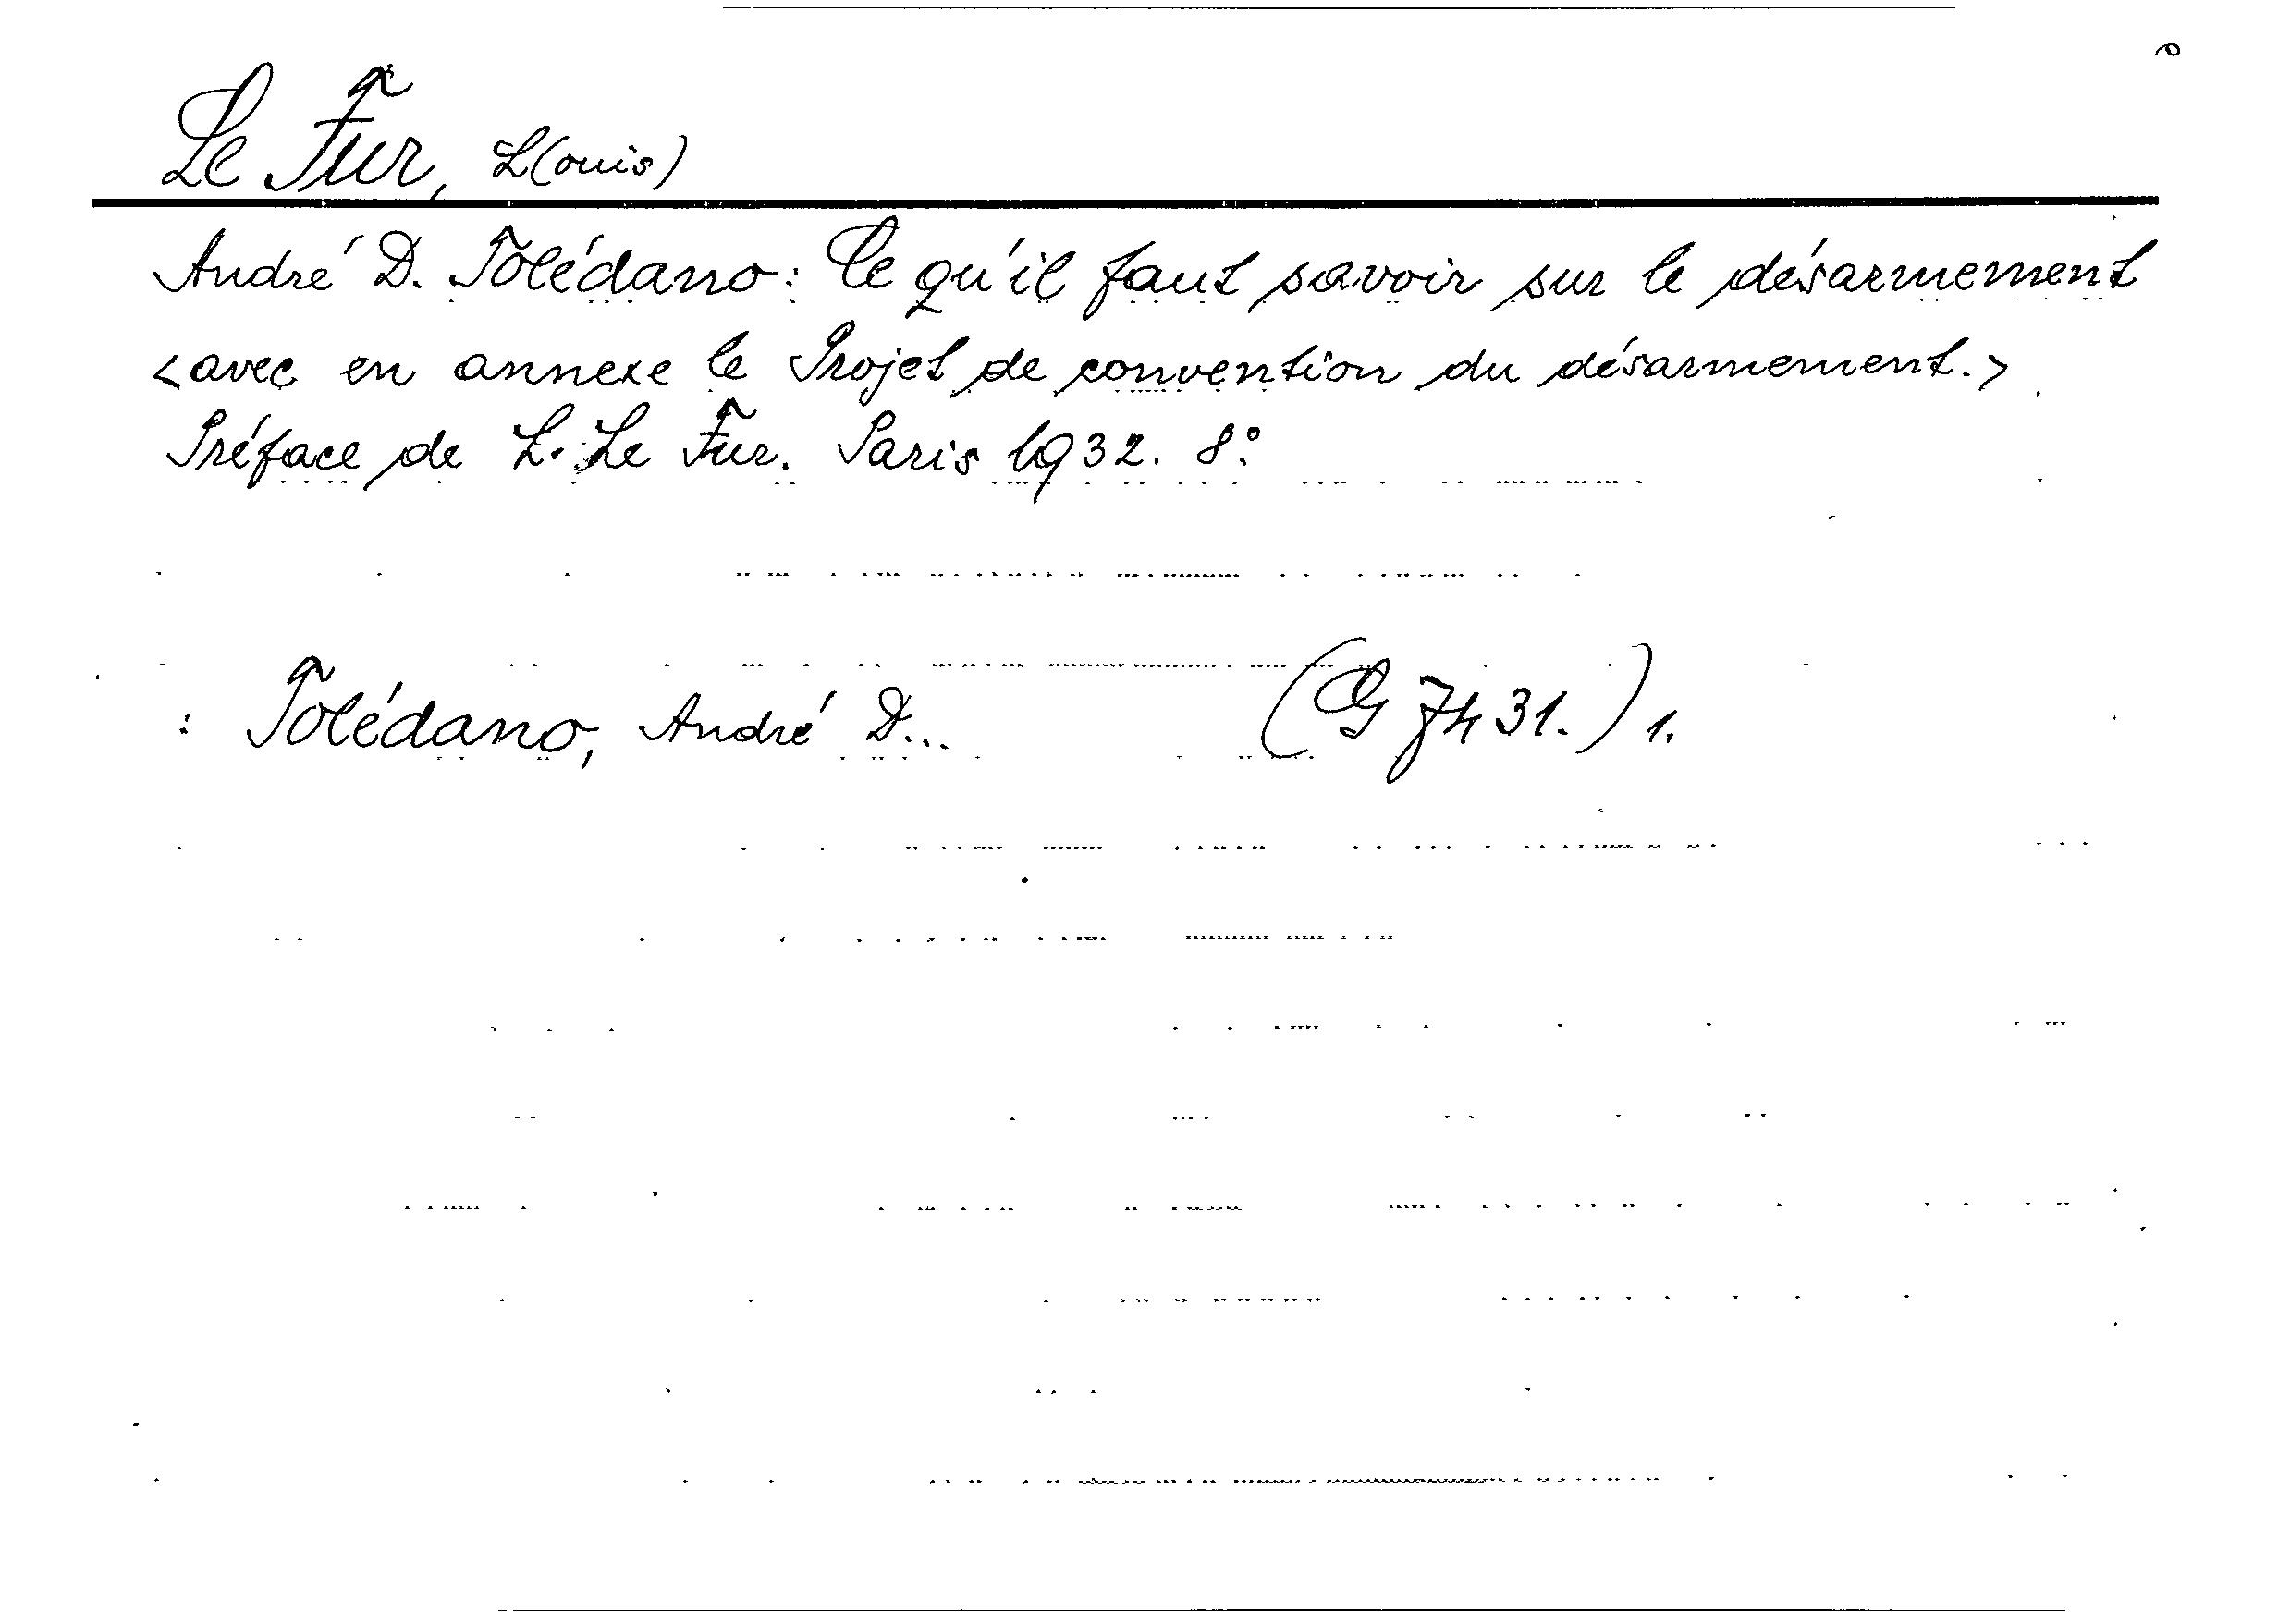 Le Fur, L(ouis)
André D. Tolédano: Ce qu'il faut savoir sur le désarmement
<avec en annexe le Projet de convention du désarmement.>
Préface de L. Le Fur. Paris 1932. 8°.
: Tolédano, André D... (G 7431.) 1.